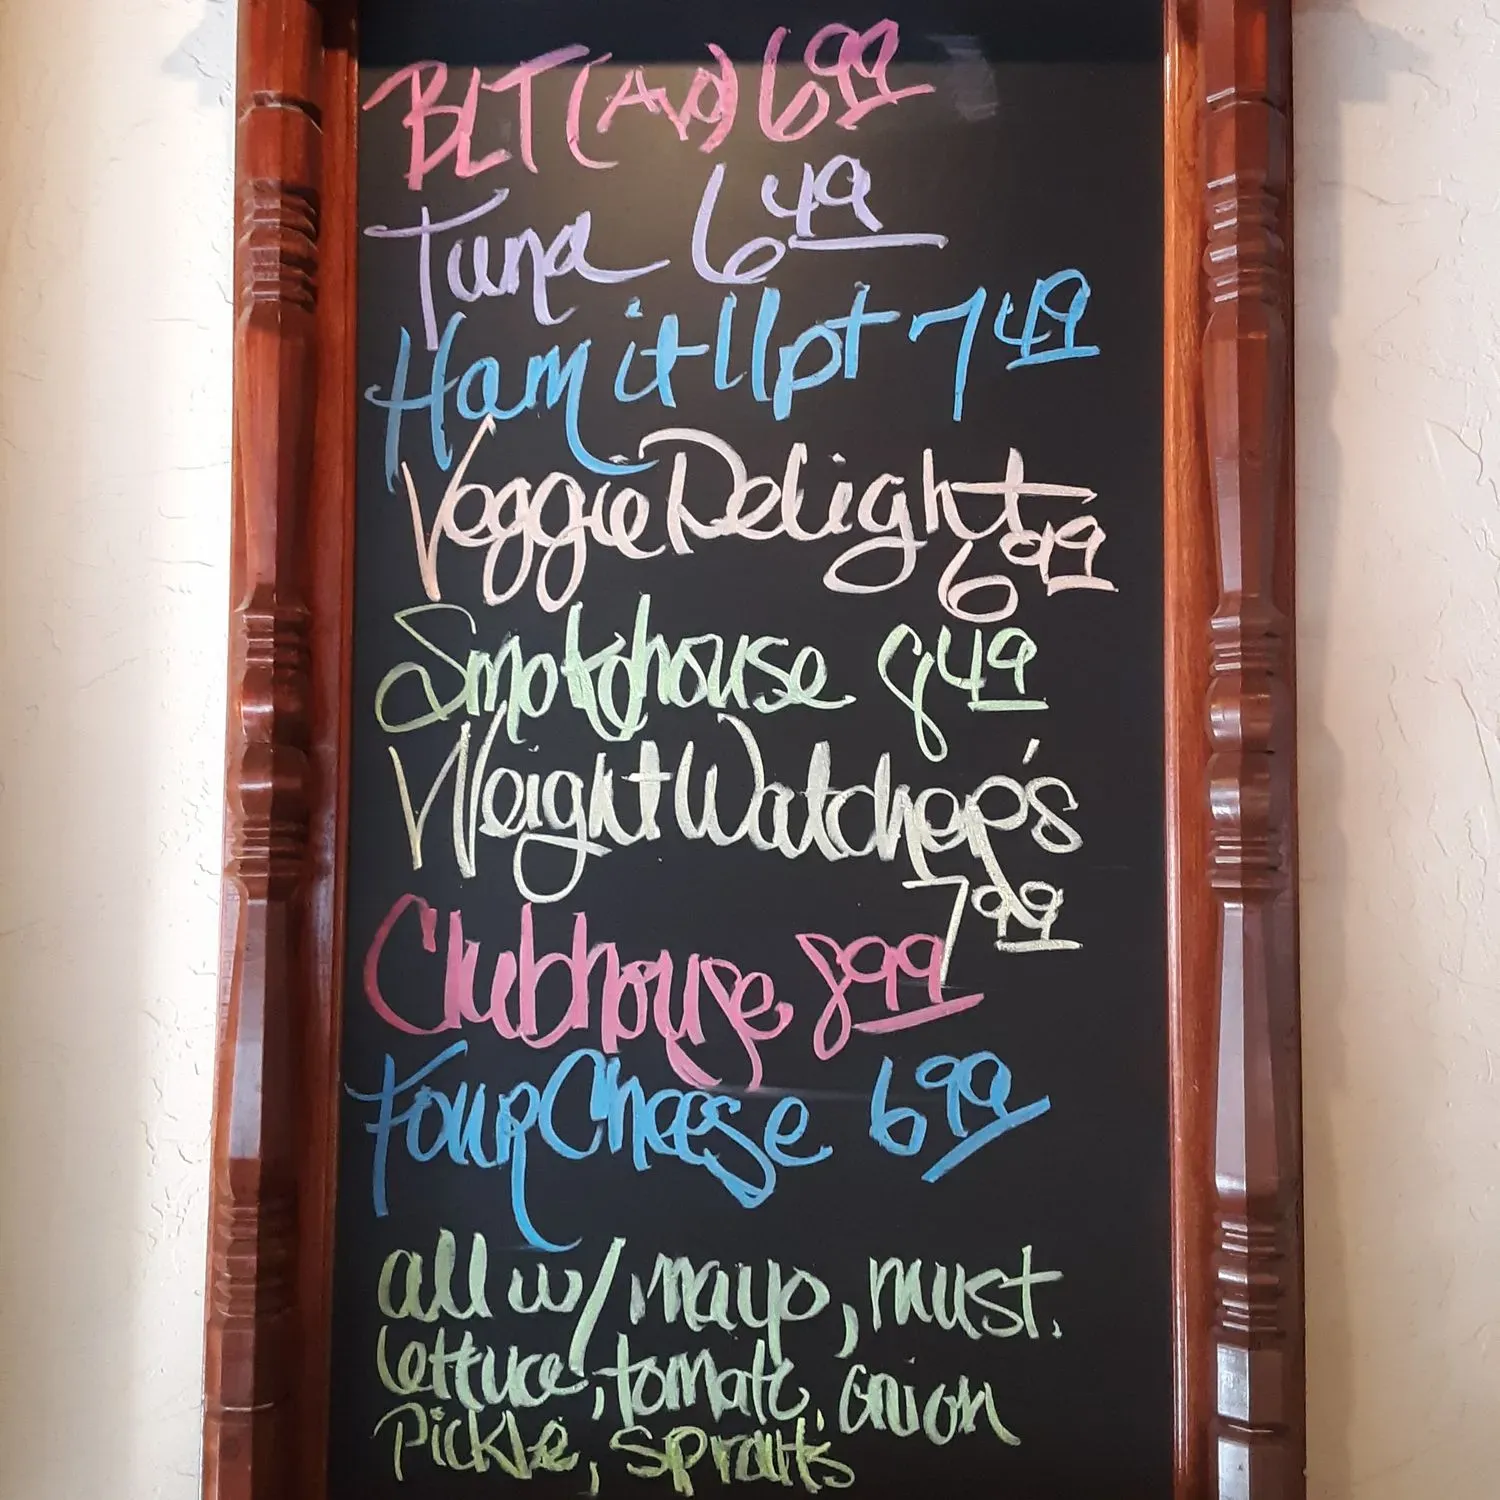 BLT (Av) 6.99
Tuna 6.49
Ham it Up 7.49
Veggie Delight
6.99
Smokehouse 8.49
Weight Watcher's
7.99
Clubhouse 8.99
Four Cheese 6.99
all w/ mayo, must.
lettuce, tomato, onion
Pickle, sprouts